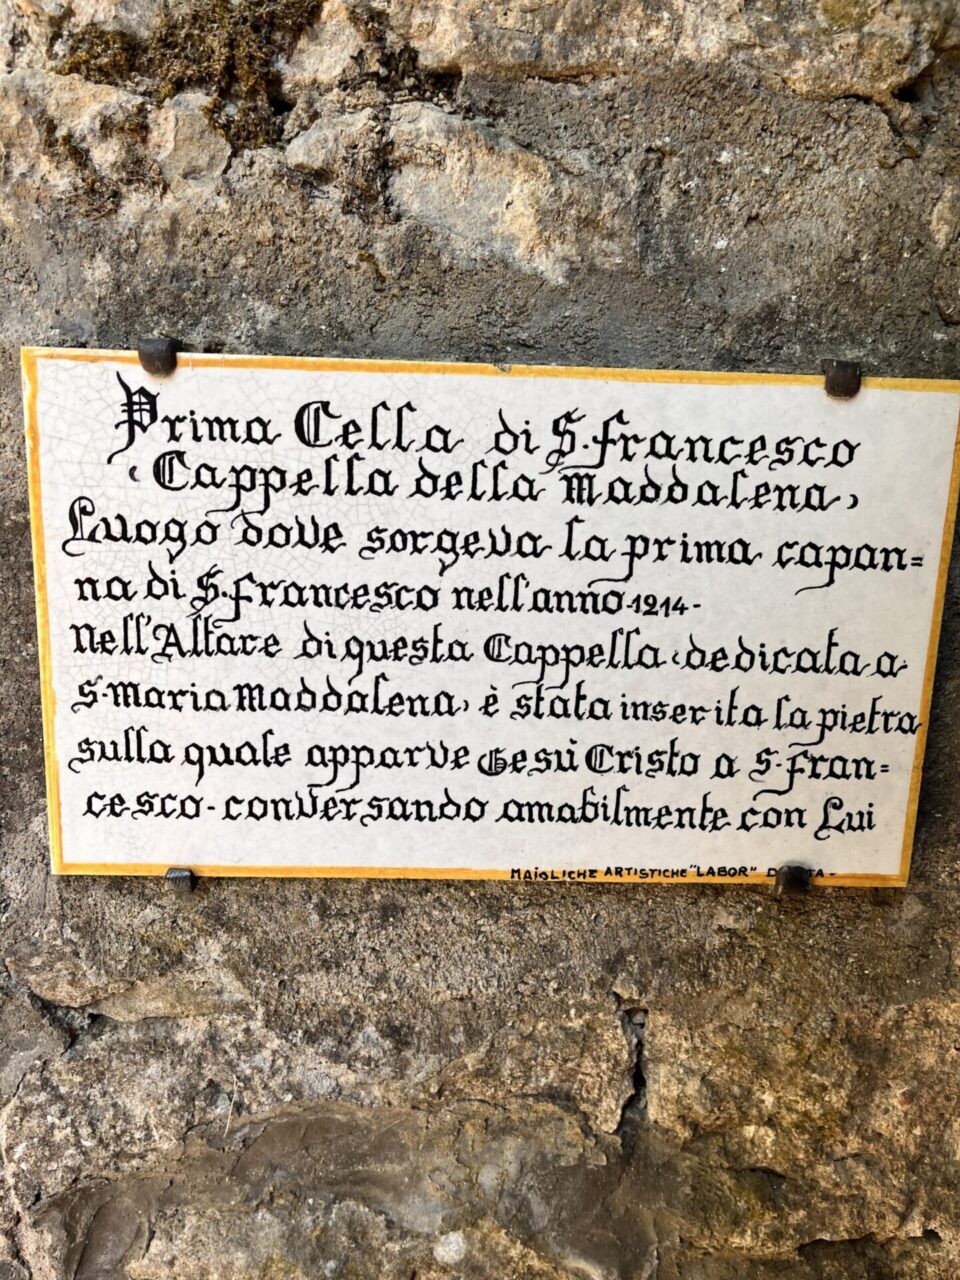 Prima Cella di S. Francesco
(Cappella della Maddalena)
Luogo dove sorgeva la prima capan=
na di S. Francesco nell'anno 1214-
Nell'Altare di questa Cappella (dedicata a
S. Maria Maddalena) è stata inserita la pietra
sulla quale apparve Gesù Cristo a S. Fran=
cesco - conversando amabilmente con Lui
MAIOLICHE ARTISTICHE "LABOR"